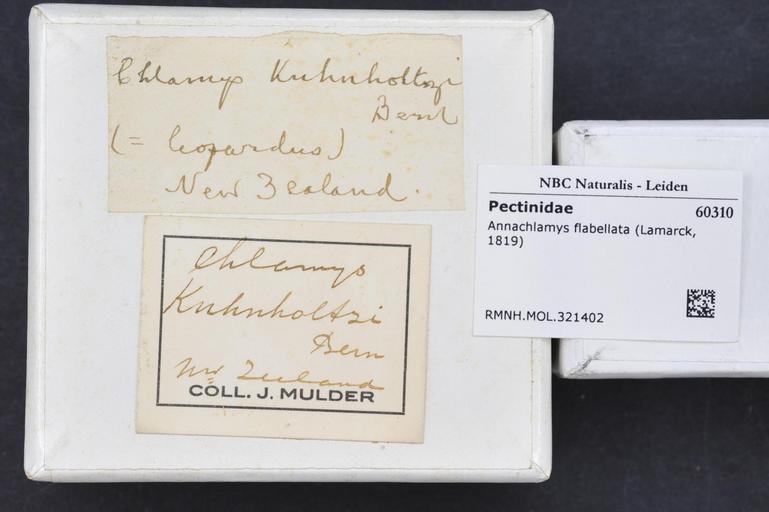 Chlamys Kuhnholtzi
Bern
(= leopardus)
New Zealand.
Chlamys
Kuhnholtzi
Bern
Nw Zeeland
COLL. J. MULDER
NBC Naturalis - Leiden
Pectinidae 60310
Annachlamys flabellata (Lamarck,
1819)
RMNH.MOL.321402